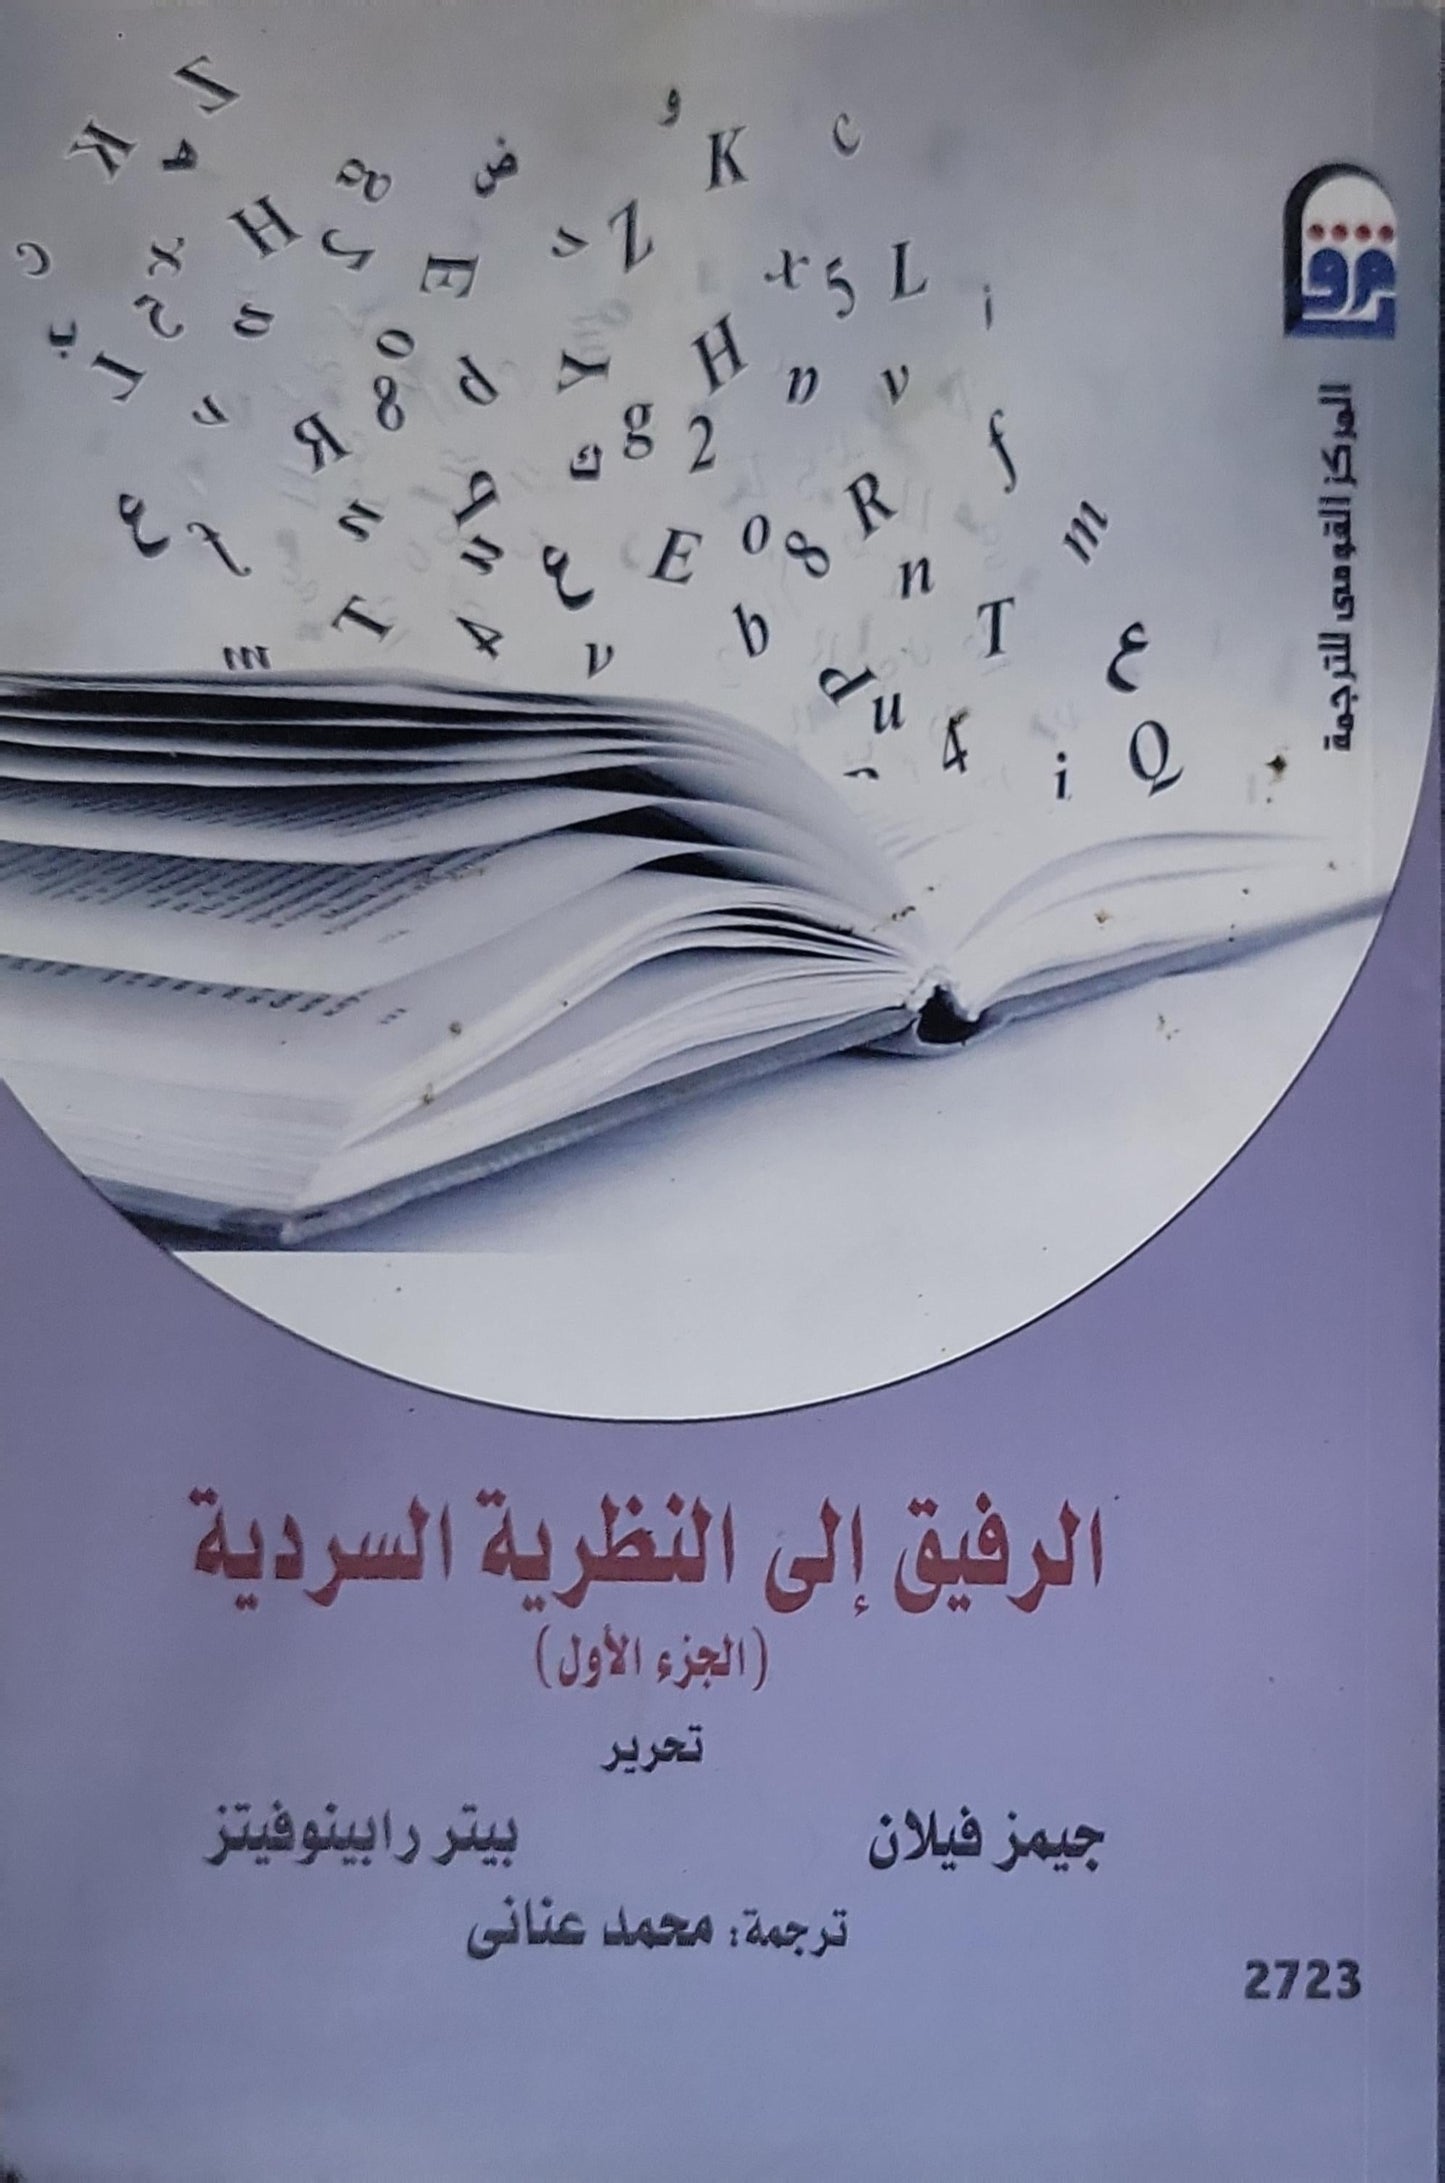 المركز القومى للترجمة
الرفيق إلى النظرية السردية
(الجزء الأول)
تحرير
جيمز فيلان
بيتر رابينوفيتز
ترجمة: محمد عنانى
2723